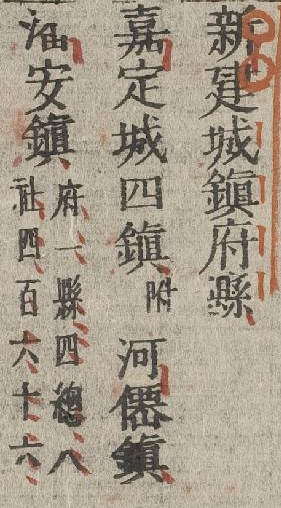 新建城鎮府縣
嘉定城四鎮附河僊鎮
安鎮府一縣四總八
社四百六十六